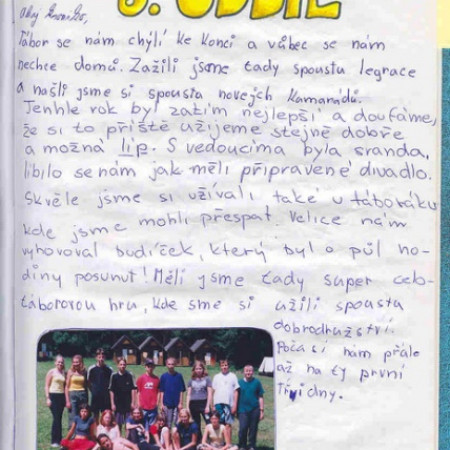 5. ODDÍL
Tábor se nám chýlí ke konci a vůbec se nám
nechce domů. Zažili jsme tady spoustu legrace
a našli jsme si spousta novejch kamarádů.
Tenhle rok byl zatím nejlepší a doufáme,
že si to příště užijeme stejně dobře
a možná líp. S vedoucíma byla sranda,
líbilo se nám jak měli připravené divadlo.
Skvěle jsme si užívali také u táboráku
kde jsme mohli přespat. Velice nám
vyhovoval budíček, který byl o půl ho-
diny posunut! Měli jsme tady super celo-
táborovou hru, kde sme si užili spousta
dobrodružství.
Počasí nám přálo
až na ty první
tři dny.